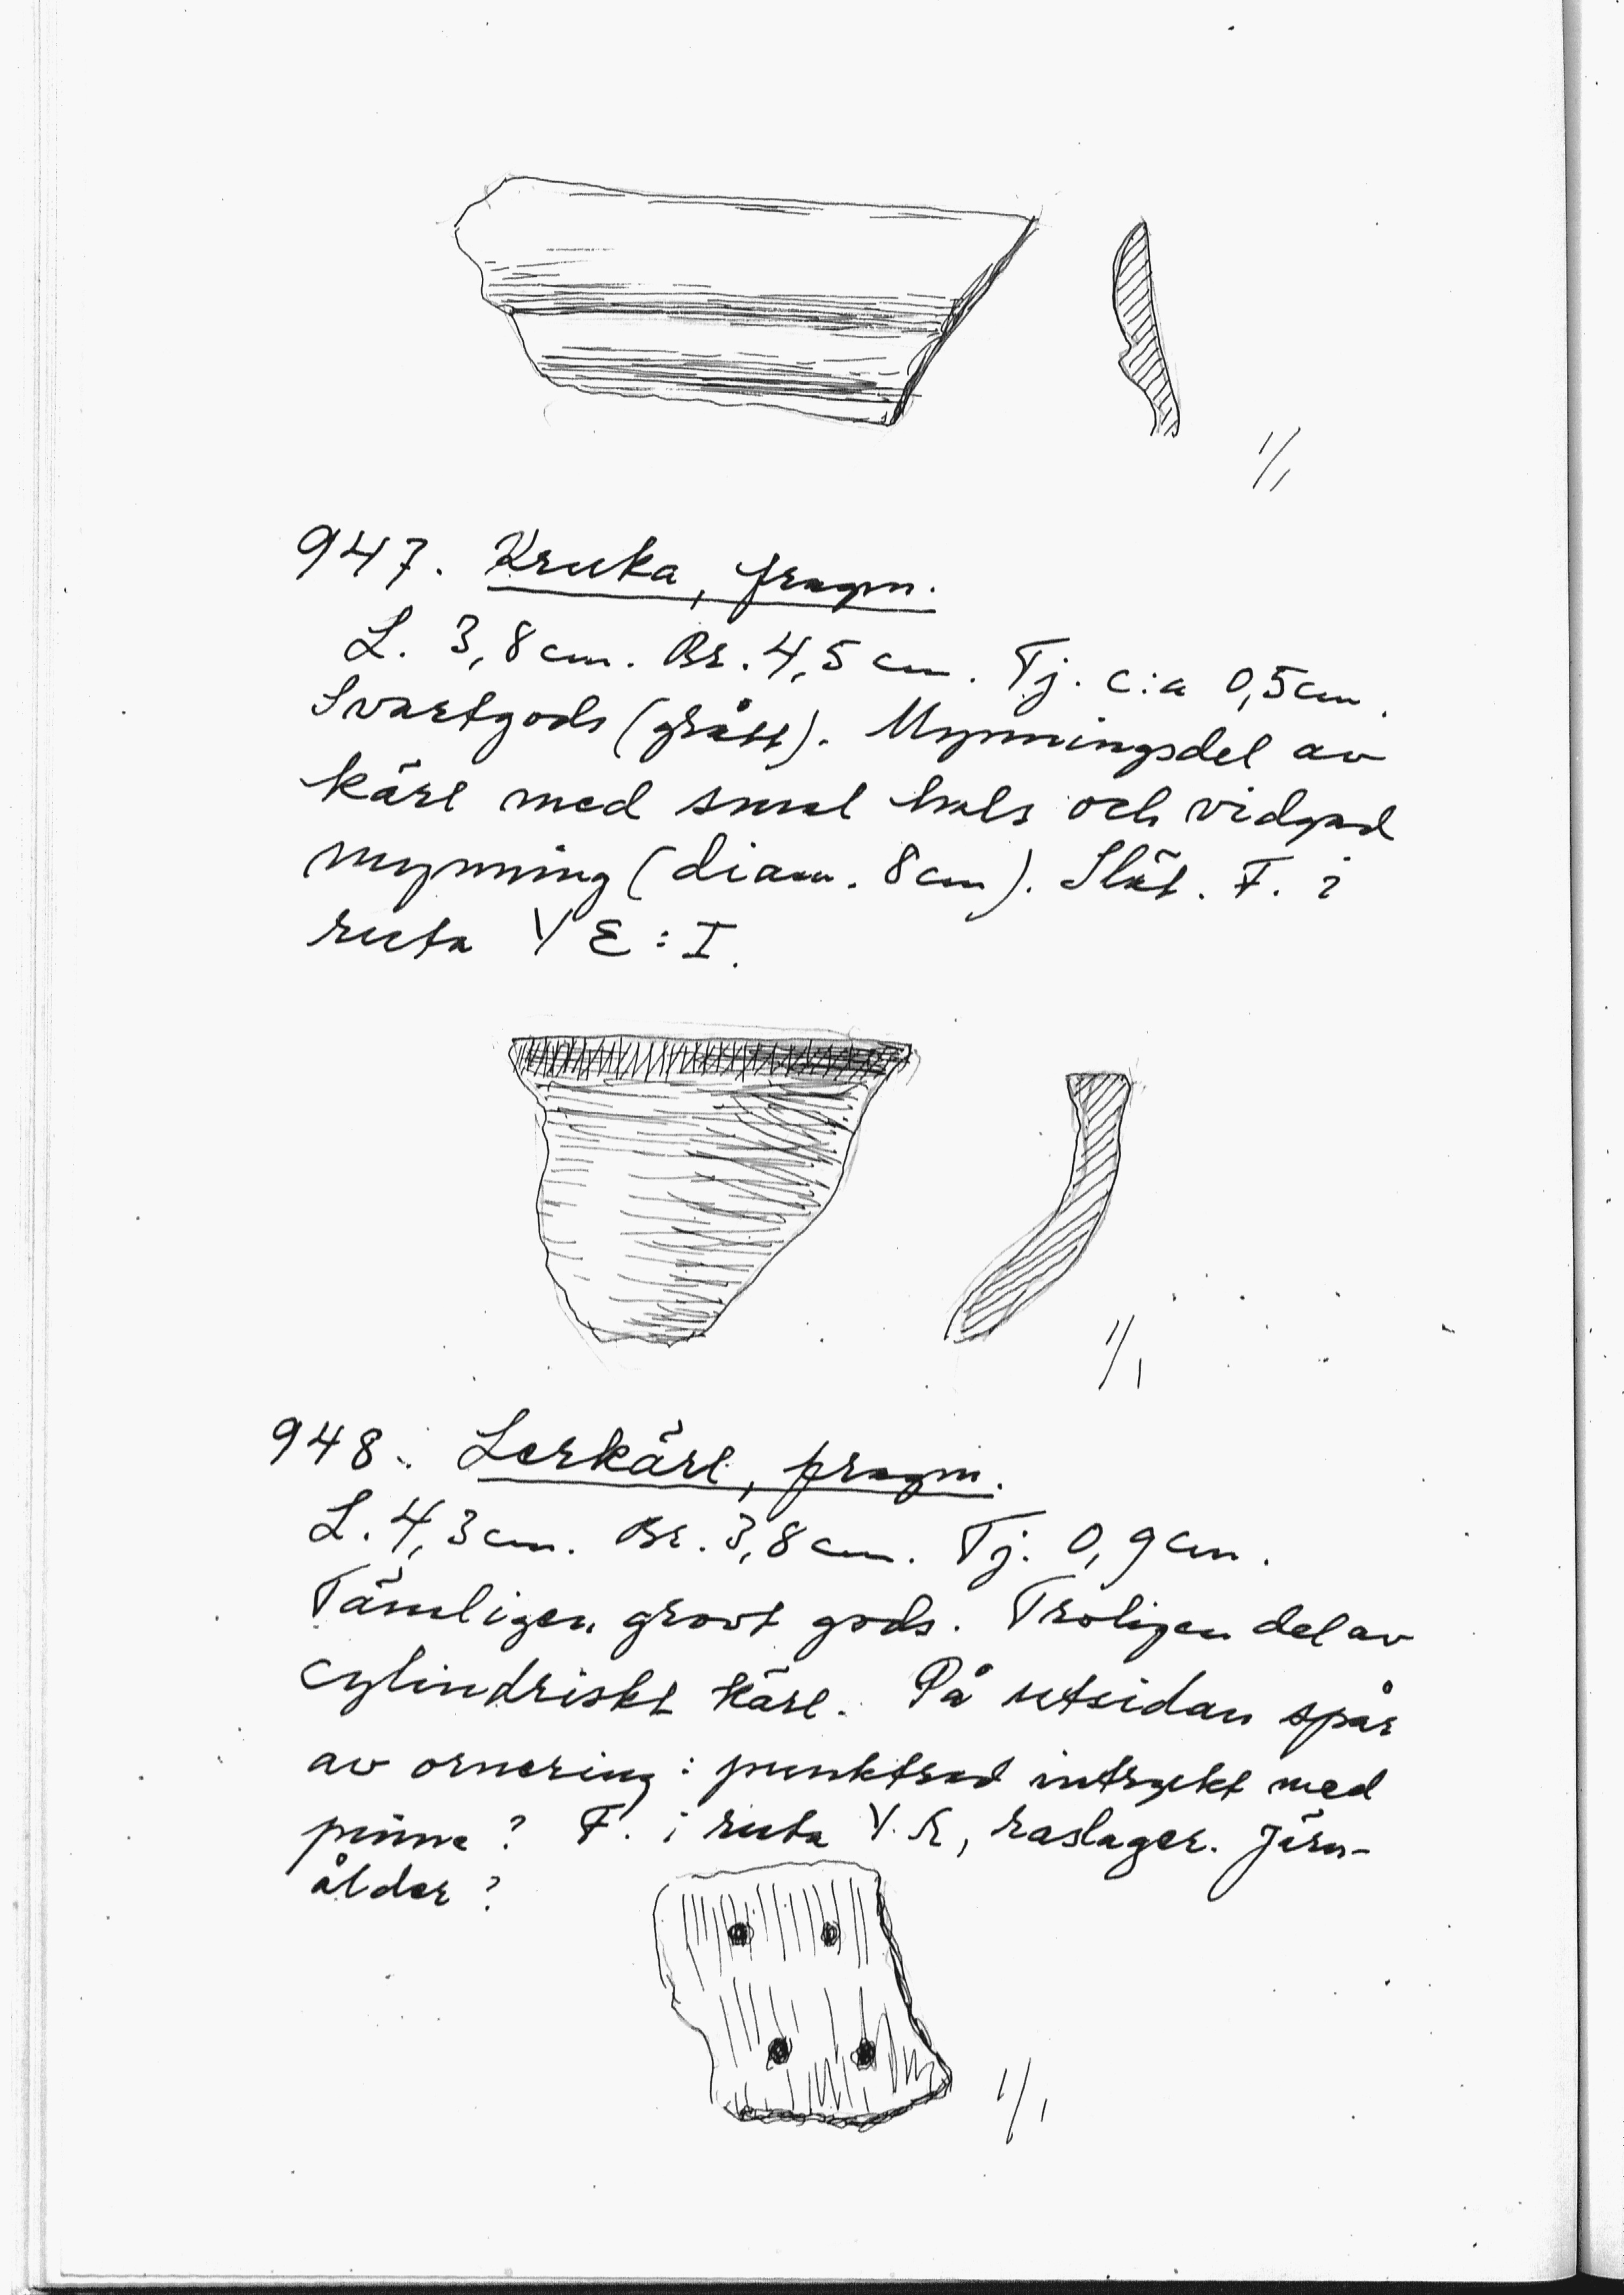 1/1
947. Kruka, fragm.
L. 3,8 cm. Br. 4,5 cm. Tj. c:a 0,5 cm.
Svartgods (grått). Mynningsdel av
kärl med smal hals och vidgad
mynning (diam. 8 cm). Slät. F. i
ruta V E : I.
1/1
948. Lerkärl, fragm.
L. 4,3 cm. Br. 3,8 cm. Tj. 0,9 cm.
Tämligen grovt gods. Troligen del av
cylindriskt kärl. På utsidan spår
av ornering : punktrad intryckt med
pinne ? F. i ruta raslager. Järn-
ålder ?
1/1